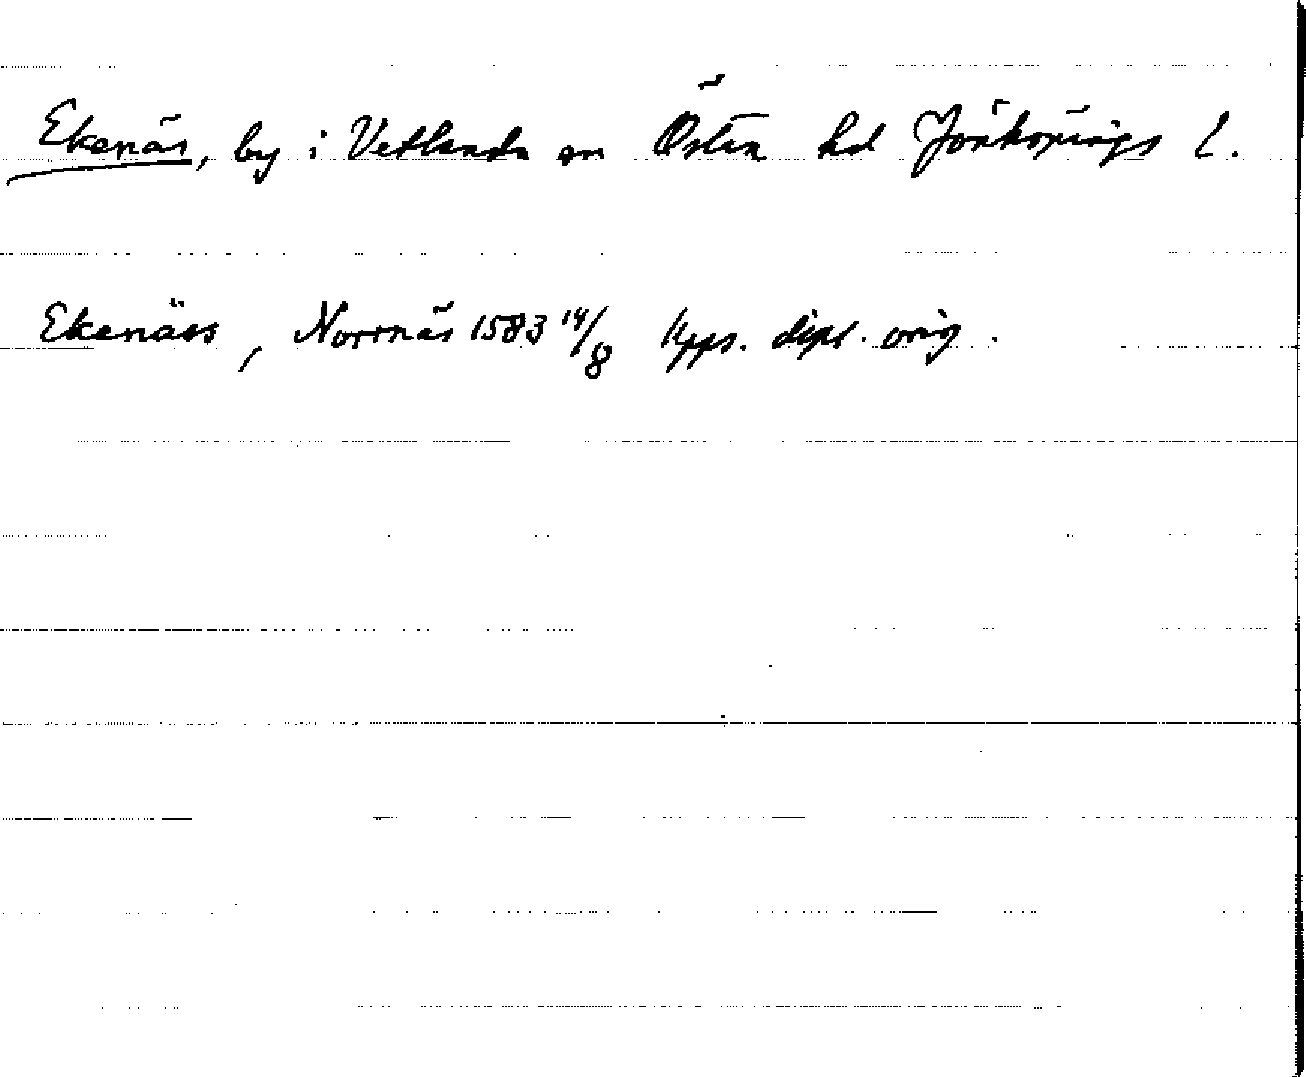 Ekenäs, by i Vetlanda sn Östra hd Jönköpings l.
Ekenäss, Norrnäs 1583 14/8 Upps. dipl. orig.